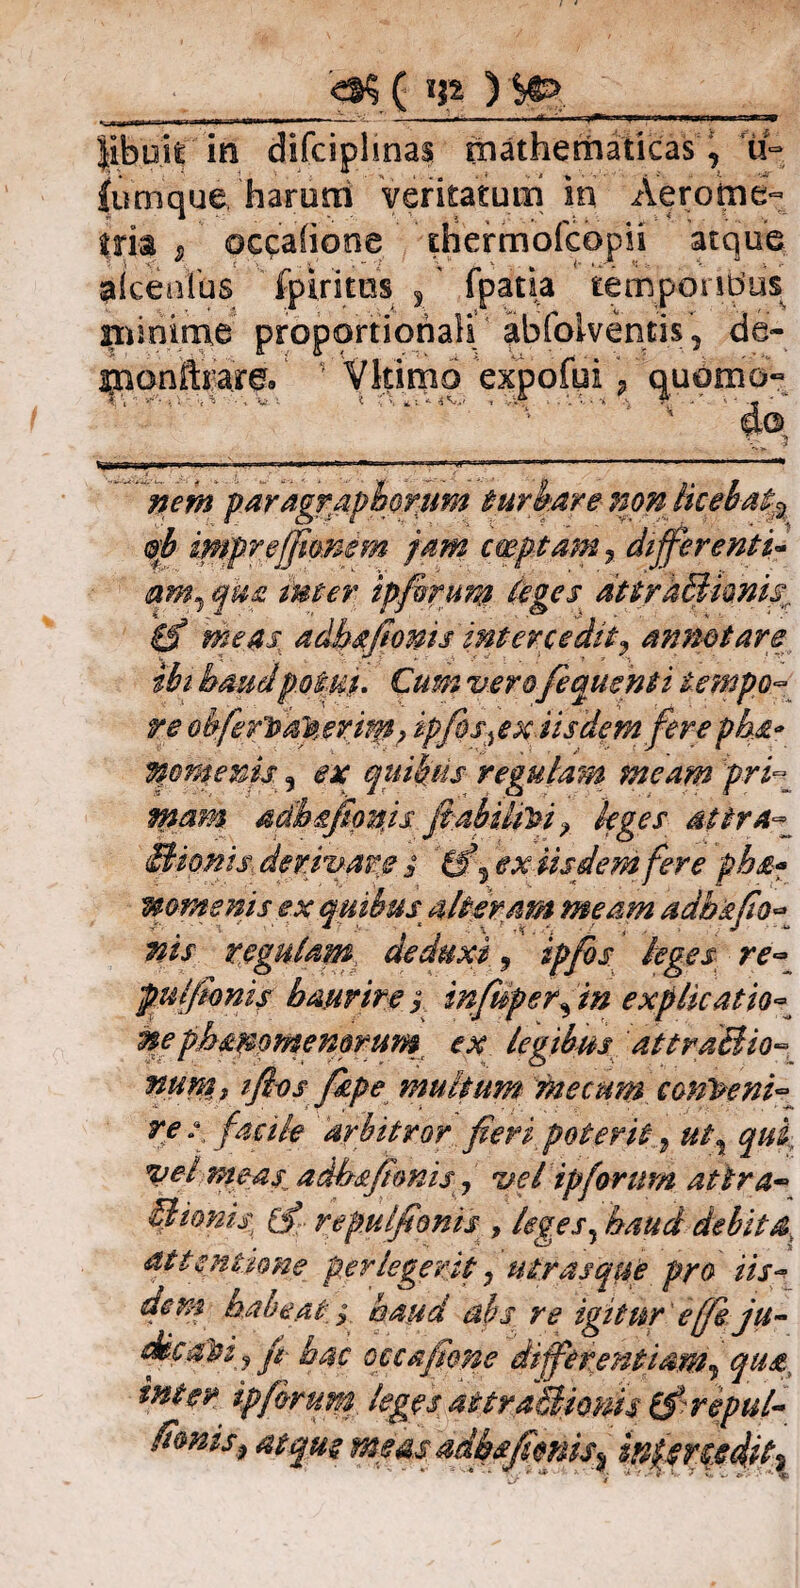 ( 132 )
libuit in diſciplinas mathematicas, u-
ſumque harum veritatum in Aerome-
tria, occaſione thermoſcopii atque
aſcenſus ſpiritus, ſpatia temporibus
minime proportionali abſolventis, de-
monſtrare. Vltimo expoſui, quomo-
do
nem paragraphorum turbare non licebat,
ob impreſſionem jam cœptam, differenti-
am, quæ inter ipſorum leges attractionis
& meas adhæſionis intercedit, annotare
ibi haud potui. Cum vero ſequenti tempo-
re obſervaverim, ipſos, ex iisdem fere phæ-
nomenis, ex quibus regulam meam pri-
mam adhæſionis ſtabilivi, leges attra-
ctionis derivare; &, ex iisdem fere phæ-
nomenis ex quibus alteram meam adhæſio-
nis regulam deduxi, ipſos leges re-
pulſionis haurire; inſuper, in explicatio-
ne phænomenorum ex legibus attractio-
num, iſtos ſæpe multum mecum conveni-
re: facile arbitror fieri poterit, ut, qui
vel meas adhæſionis, vel ipſorum attra-
ctionis & repulſionis, leges, haud debita
attentione perlegerit, utrasque pro iis-
dem habeat; haud abs re igitur eſſe ju-
dicavi, ſi hac occaſione differentiam, quæ
inter ipſorum leges attractionis & repul-
ſionis, atque meas adhæſionis, intercedit,